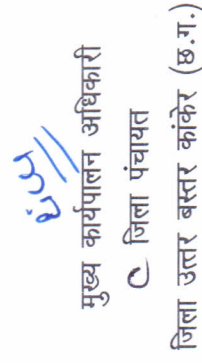 मुख्य कार्यपालन अधिकारी
जिला पंचायत
जिला उत्तर बस्तर कांकेर (छ.ग.)